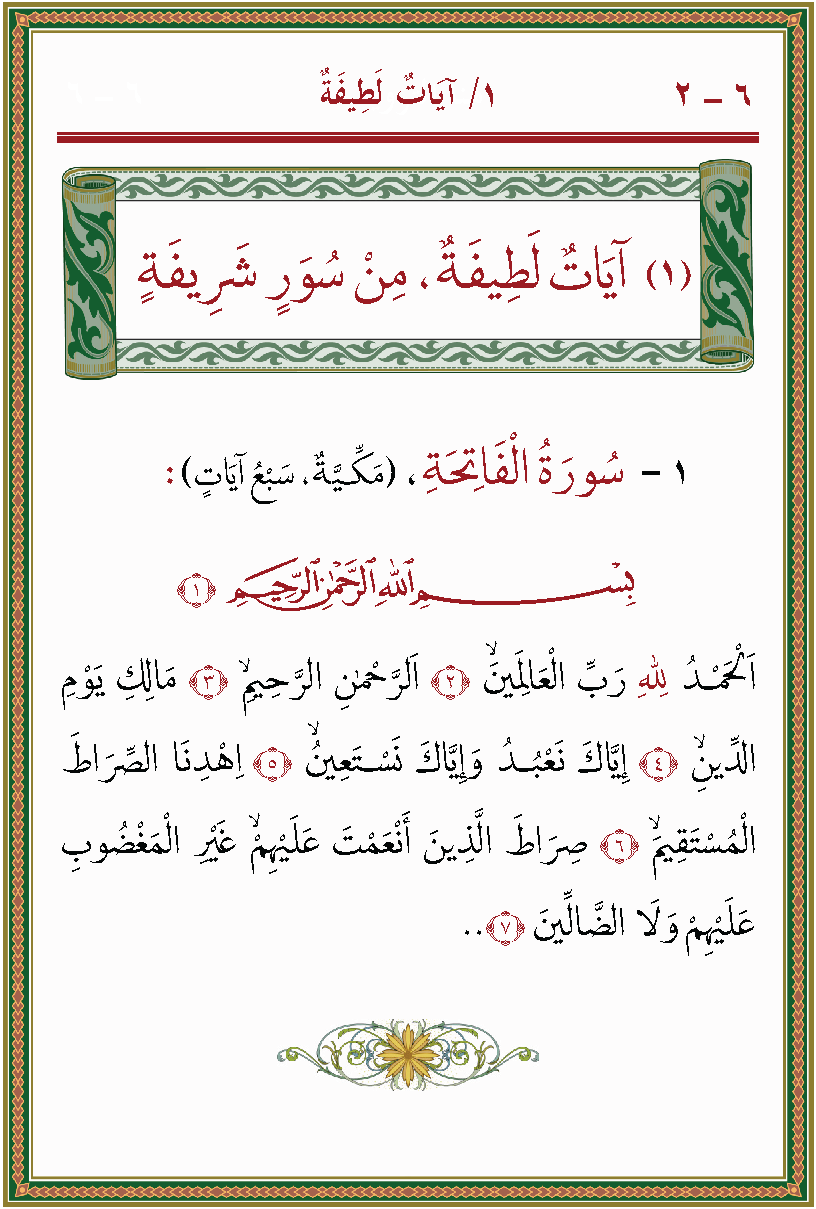 ٦ – ٢ ١/ آيَاتٌ لَطِيفَةٌ
(١) آيَاتٌ لَطِيفَةٌ، مِنْ سُوَرٍ شَرِيفَةٍ
١ – سُورَةُ الْفَاتِحَةِ، (مَكِّـيَّةٌ، سَبْعُ آيَاتٍ):
بِسْــمِ اللهِ الرَّحْمٰنِ الرَّحِيـمِ ﴿١﴾
اَلْحَمْـدُ لِلهِ رَبِّ الْعَالَمِينَۙ ﴿٢﴾ اَلرَّحْمٰنِ الرَّحِيمِۙ ﴿٣﴾ مَالِكِ يَوْمِ
الدِّينِۙ ﴿٤﴾ إِيَّاكَ نَعْبُـدُ وَإِيَّاكَ نَسْـتَعِينُۙ ﴿٥﴾ اِهْدِنَا الصِّرَاطَ
الْمُسْتَقِيمَۙ ﴿٦﴾ صِرَاطَ الَّذِينَ أَنْعَمْتَ عَلَيْهِمْۙ غَيْرِ الْمَغْضُوبِ
عَلَيْهِمْ وَلَا الضَّالِّينَ ﴿٧﴾..